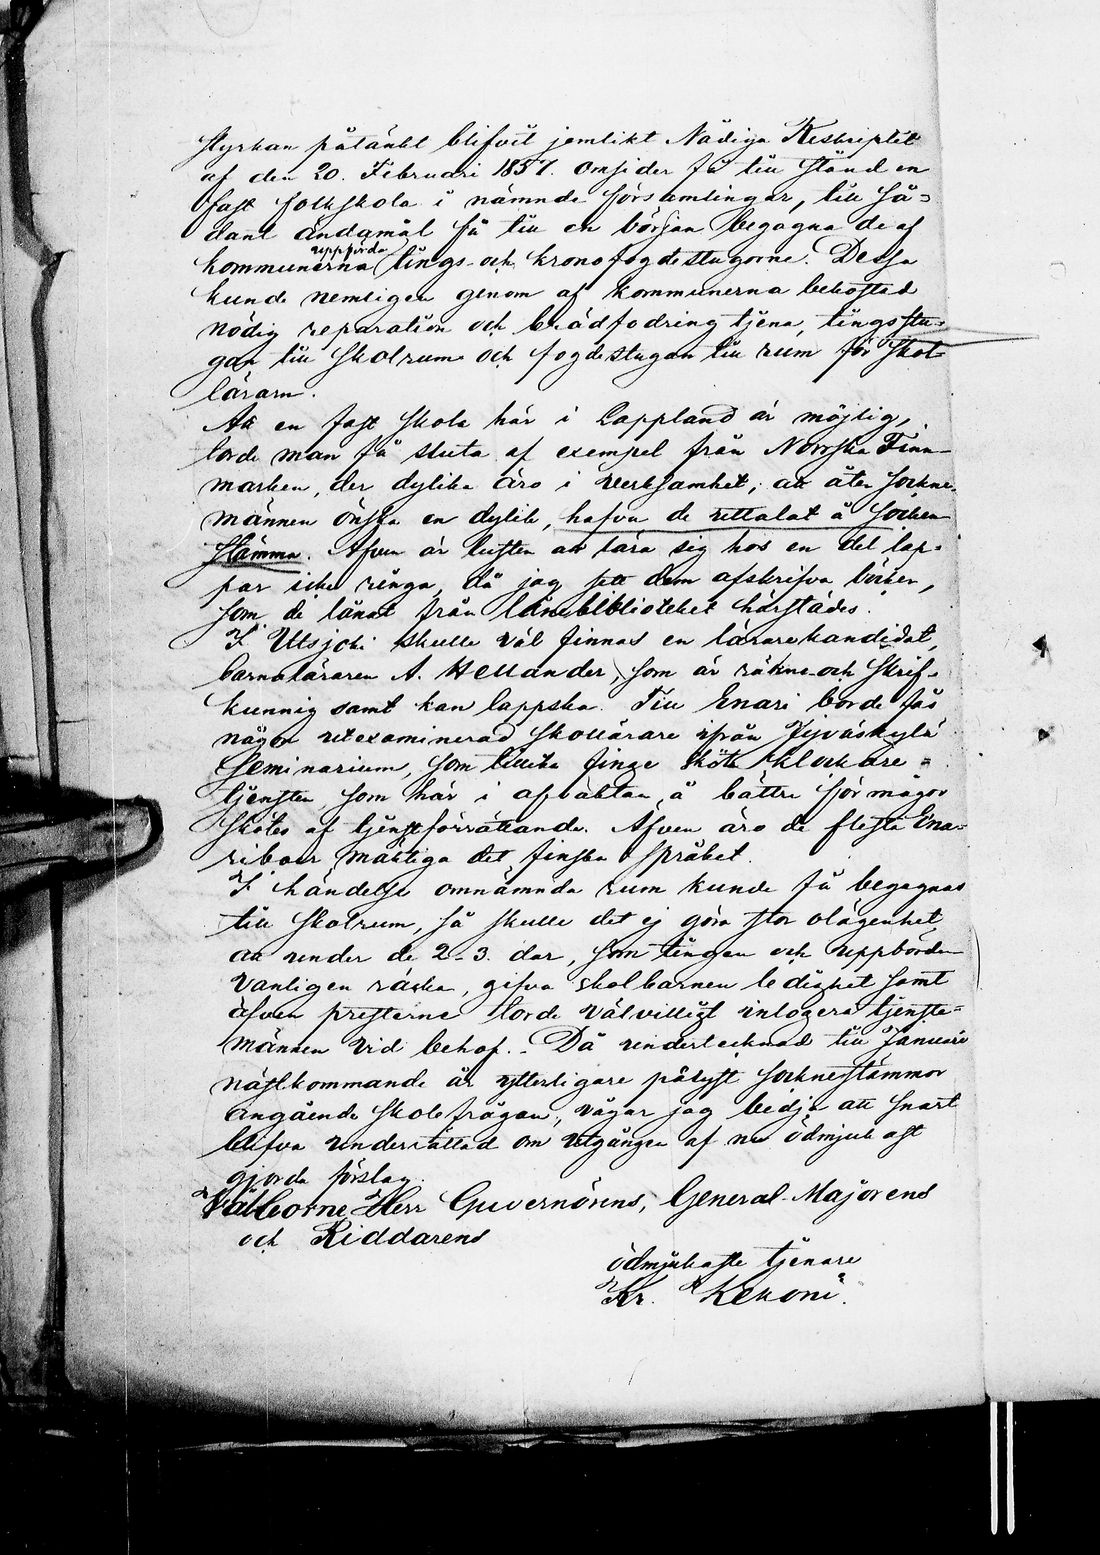 styrkan påtänkt blifvit jemlikt Nådiga Reskriptet
af den 20. Februari 1857. omsider få till stånd en
fast folkskola i nämnde församlingar, till så=
dant ändamål få till en början begagna de af
kommunerna uppförda tings- och kronofogdestugorne. Dessa
kunde nemligen genom af kommunerna bekostad
nödig reparation och brädfodring tjena, tingsstu=
gan till skolrum och fogdestugan till rum för skol=
läraren.
Att en fast skola här i Lappland är möjlig,
torde man få sluta af exempel från Norrska Finn=
marken, der dylika äro i verksamhet; att åter sockne
männen önska en dylik, hafva de uttalat å socken
stämma. Äfven är lusten att lära sig hos en del lap=
par icke ringa, då jag sett dem afskrifva böcker,
som de lånat från lånebiblioteket härstädes.
I Utsjoki skulle väl finnas en lärarekandidat,
barnaläraren A. Hellander, som är räkne- och skrif=
kunnig samt kan lappska. Till Enari borde fås
någon utexaminerad skollärare ifrån Jyväskylä
Seminarium, som tillika finge sköta klockare=
tjensten, som här i afvaktan å bättre förmågor
skötes af tjenstförrättande. Äfven äro de flesta Ena=
riboer mäktiga det finska språket.
I händelse omnämnda rum kunde få begagnas
till skolrum, så skulle det ej göra stor olägenhet,
att under de 2-3. dar, som tingen och uppbörden
vanligen räcka, gifva skolbarnen ledighet samt
äfven presterne torde välvilligt inlogera tjenste=
männen vid behof. - Då undertecknad till Januari
nästkommande år ytterligare pålyst socknestämmor
angående skolefrågan, vågar jag bedja att snart
blifva underrättad om utgången af nu ödmjukast
gjorda förslag.
Välborne Herr Guvernörens, General-Majorens
och Riddarens
ödmjukaste tjenare
Kr.